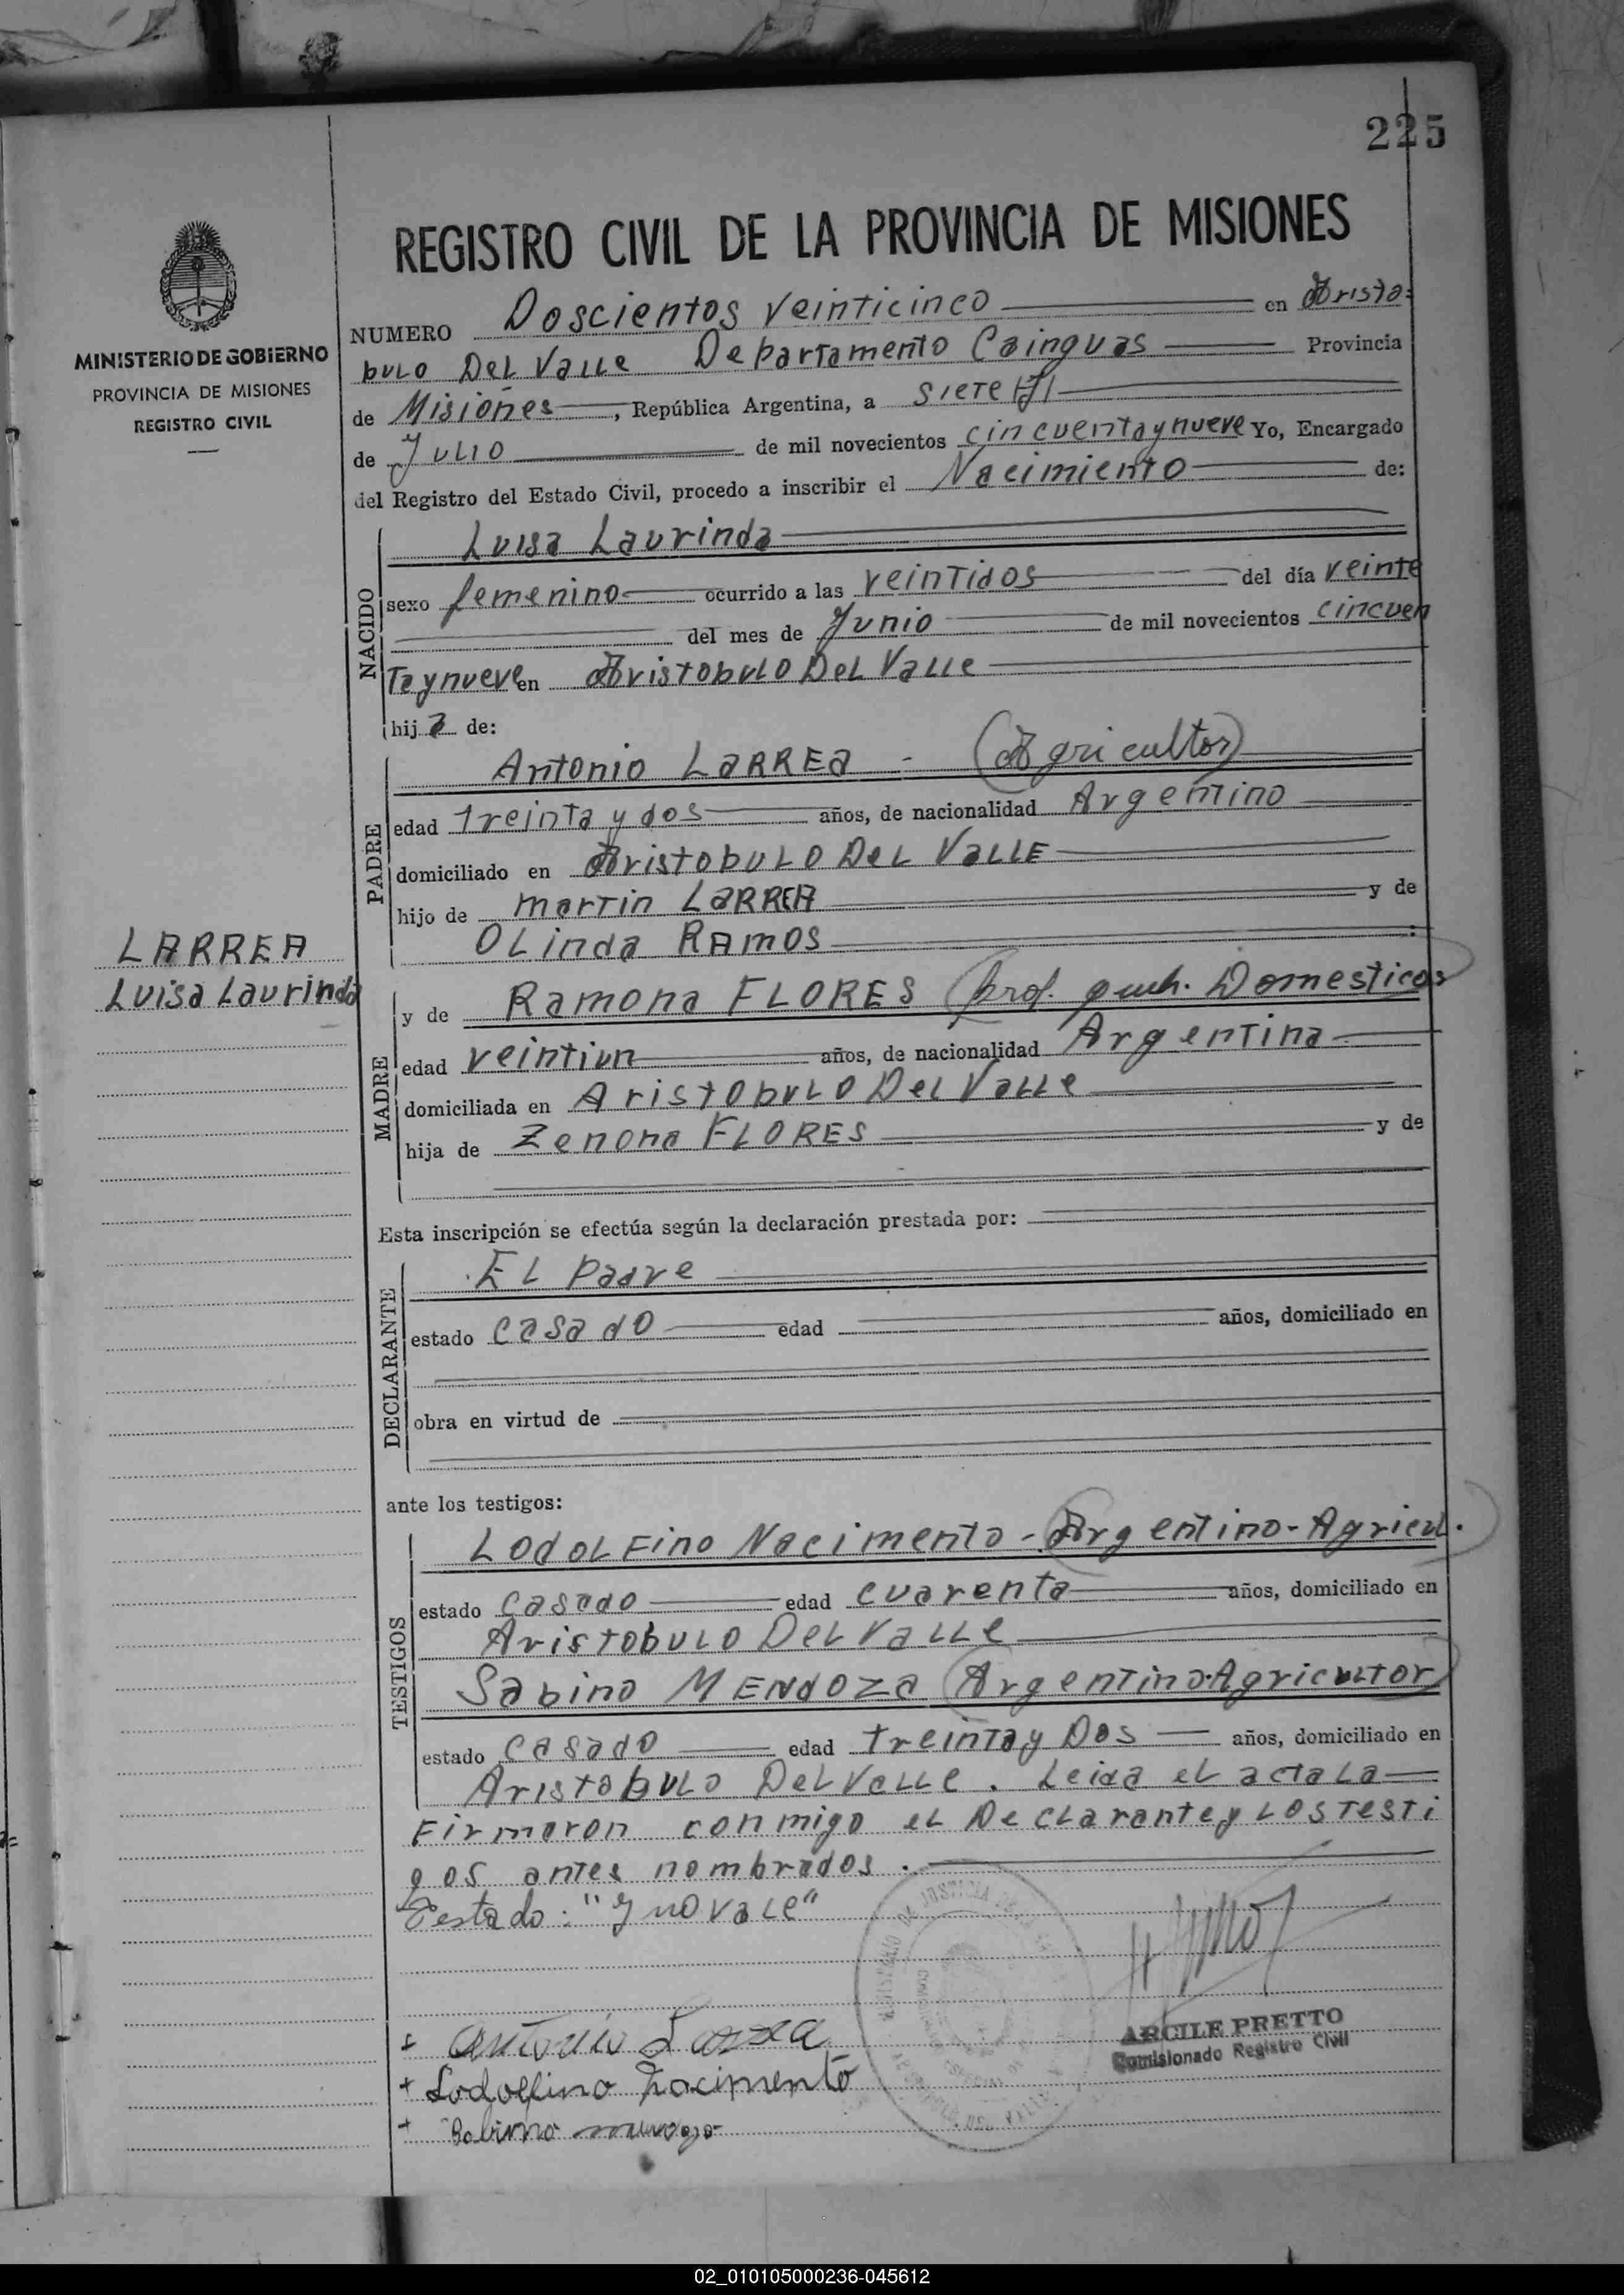 225
MINISTERIO DE GOBIERNO
PROVINCIA DE MISIONES
REGISTRO CIVIL
REGISTRO CIVIL DE LA PROVINCIA DE MISIONES
NUMERO Doscientos veinticinco en Aristo
bulo Del Valle Departamento Cainguas Provincia
de Misiones, República Argentina, a siete
de Julio de mil novecientos cincuentaynueve Yo, Encargado
del Registro del Estado Civil, procedo a inscribir el Nacimiento de:
NACIDO
Luisa Laurinda
sexo femenino ocurrido a las veintidos del día veinte
del mes de Junio de mil novecientos cincuen
Taynueve en Aristobulo Del Valle
hija de:
PADRE
Antonio LARREA - (Agricultor)
edad treinta y dos años, de nacionalidad Argentino
domiciliado en Aristobulo Del Valle
hijo de martin LARREA y de
Olinda RAMOS
LARREA
Luisa Laurinda
MADRE
y de Ramona FLORES (prof. queh. Domesticos
edad veintiun años, de nacionalidad Argentina
domiciliada en Aristobulo Del Valle
hija de Zenona FLORES y de
Esta inscripción se efectúa según la declaración prestada por:
DECLARANTE
El padre
estado casado edad años, domiciliado en
obra en virtud de
ante los testigos:
TESTIGOS
Lodolfino Nacimento - Argentino - Agricul.
estado casado edad cuarenta años, domiciliado en
Aristobulo Del Valle
Sabino MENDOZA (Argentino-Agricultor)
estado casado edad treintay Dos años, domiciliado en
Aristobulo Del Valle. Leida el acta la
Firmaron conmigo el Declarante y los testi
gos antes nombrados.
Testado: "y no vale"
Antonio Larrea
+ Lodolfino Nacimento
+ Sabino
ARCILE PRETTO
Comisionado Registro Civil
02_010105000236-045612